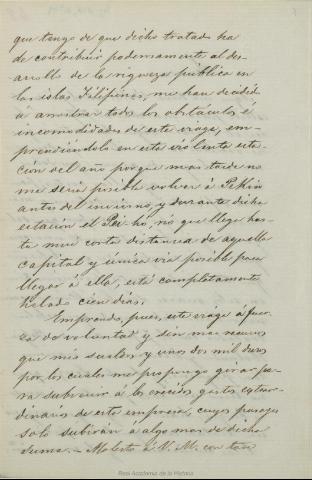 que tengo de que dicho tratado ha
de contribuir poderosamente al des-
arrollo de la riqueza pública en
las islas Filipinas, me han decidido
a arrostrar todos los obstáculos é
incomodidades de este viage, em-
prendiéndolo en esta violenta esta-
ción del año porque mas tarde no
me seria posible volver á Pekin
antes del invierno, y durante dicha
estación el Pei-ho, rio que llega has-
ta muy corta distancia de aquella
capital y única via posible para
llegar á ella, está completamente
helado cien dias.
Emprendo, pues, este viage á fuer-
za de voluntad y sin mas recursos
que mis sueldos y unos dos mil duros
por los cuales me propongo girar pa-
ra subvenir á los crecidos gastos extraor-
dinarios de esta empresa, cuyos pasages
solo subirán á algo mas de dicha
suma. - Molesto á V. M. con tan
Real Academia de la Historia